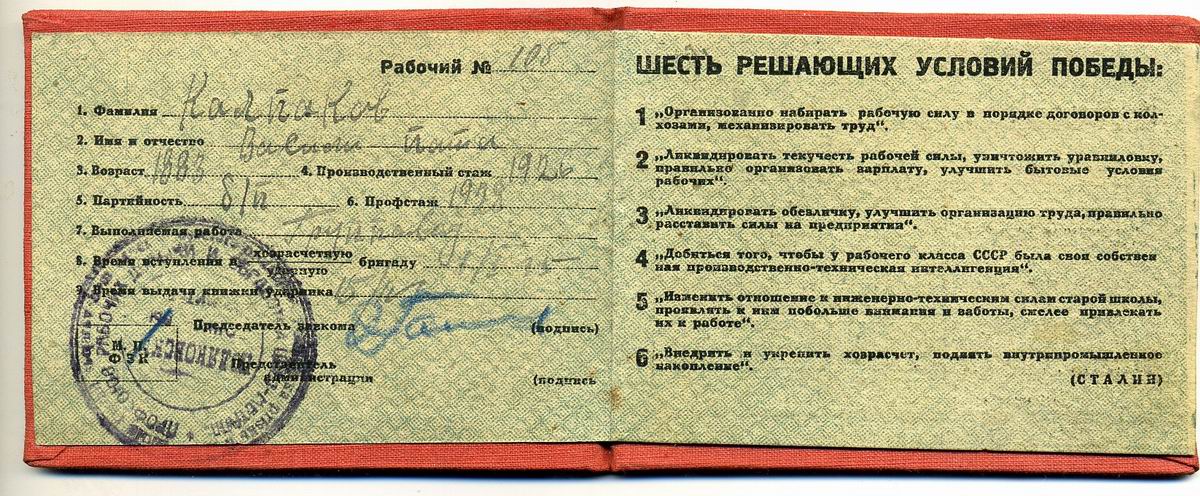 Рабочий № 108
1. Фамилия Калпаков
2. Имя и отчество
3. Возраст 1883 4. Производственный стаж 1926
5. Партийность б/п 6. Профстаж
7. Выполняемая работа
8. Время вступления в хозрасчетную ударную бригаду
9. Время выдачи книжки ударника
Председатель завкома (подпись)
М. П.
ФЗК
Представитель администрации (подпись
ШЕСТЬ РЕШАЮЩИХ УСЛОВИЙ ПОБЕДЫ:
1 „Организованно набирать рабочую силу в порядке договоров с кол-
хозами, механизировать труд“.
2 „Ликвидировать текучесть рабочей силы, уничтожить уравниловку,
правильно организовать зарплату, улучшить бытовые условия
рабочих“.
3 „Ликвидировать обезличку, улучшить организацию труда, правильно
расставить силы на предприятии“.
4 „Добиться того, чтобы у рабочего класса СССР была своя собствен
ная производственно-техническая интеллигенция“.
5 „Изменить отношение к инженерно-техническим силам старой школы,
проявлять к ним побольше внимания и заботы, смелее привлекать
их к работе“.
6 „Внедрить и укрепить хозрасчет, поднять внутрипромышленное
накопление“.
(СТАЛИН)